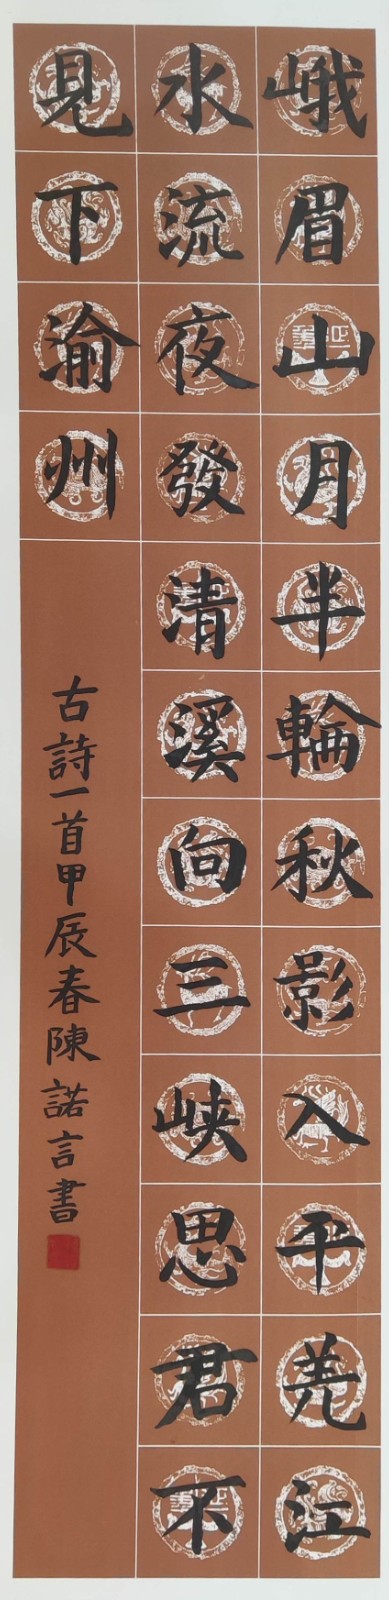 峨眉山月半輪秋影入平羌江
水流夜發清溪向三峽思君不
見下渝州
古詩一首甲辰春陳諾言書